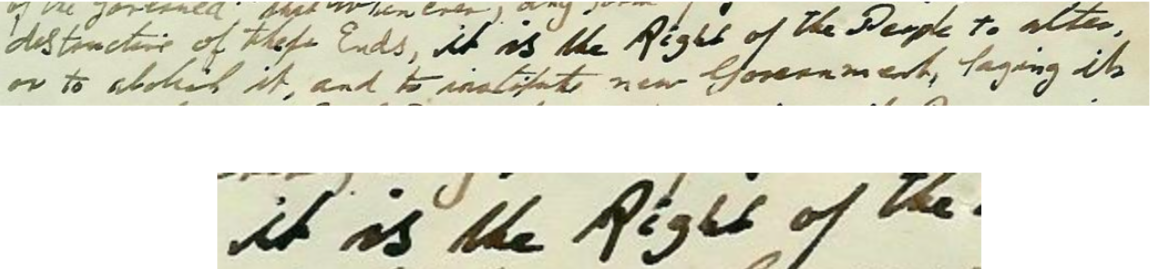 of the Governed that whenever, any form
destructive of these Ends, it is the Right of the People to alter,
or to abolish it, and to institute new Government, laying its
it is the Right of the